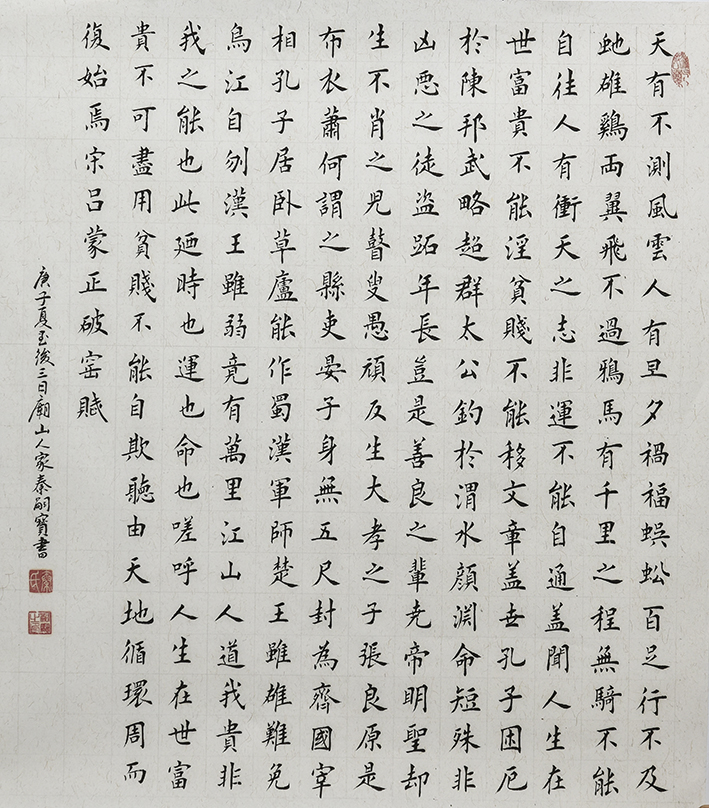 天有不測風雲人有旦夕禍福蜈蚣百足行不及
虵雄鷄兩翼飛不過鴉馬有千里之程無騎不能
自往人有衝天之志非運不能自通盖聞人生在
世富貴不能淫貧賤不能移文章盖世孔子困厄
於陳邦武略超群太公釣於渭水顏淵命短殊非
凶惡之徒盜跖年長豈是善良之輩堯帝明聖却
生不肖之兒瞽叟愚頑反生大孝之子張良原是
布衣蕭何謂之縣吏晏子身無五尺封為齊國宰
相孔子居卧草廬能作蜀漢軍師楚王雖雄難免
烏江自刎漢王雖弱竟有萬里江山人道我貴非
我之能也此廼時也運也命也嗟呼人生在世富
貴不可盡用貧賤不能自欺聽由天地循環周而
復始焉宋吕蒙正破窑賦
庚子夏至後三日廟山人家秦嗣寶書